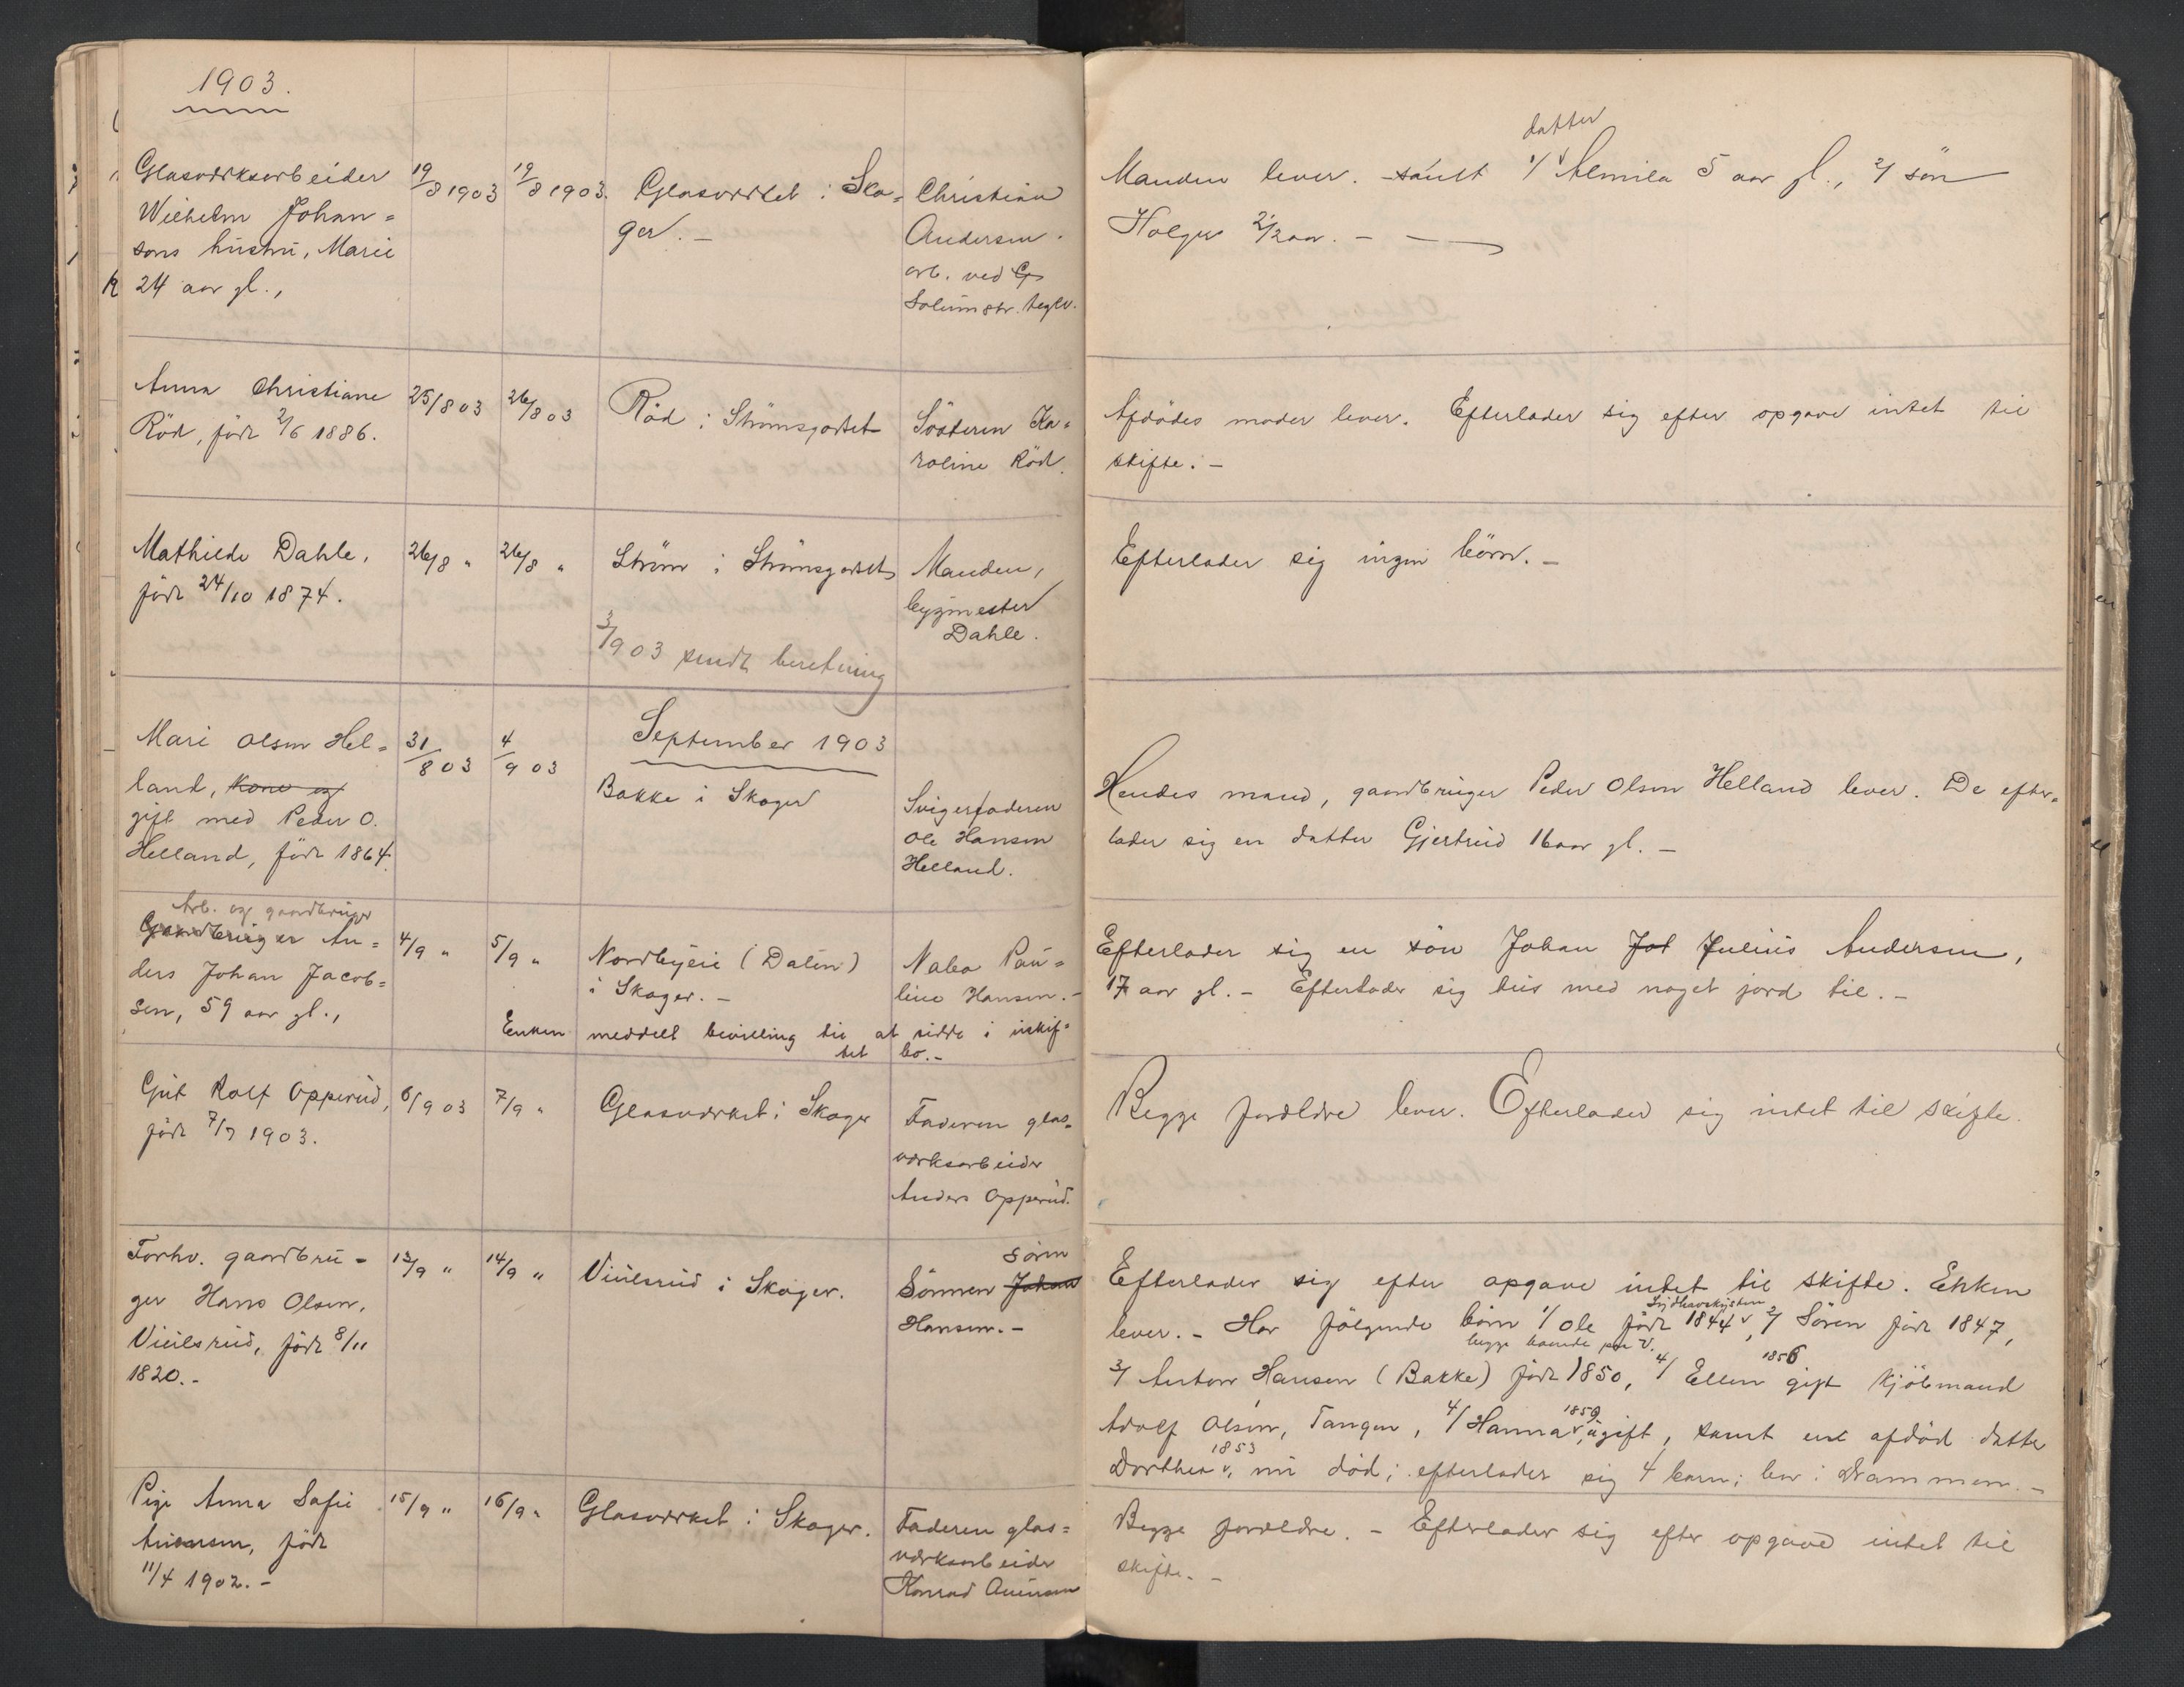 1903.
Glasværksarbeider
Wilhelm Johan=
sens hustru, Marie
24 aar gl.,
19/8 1903
19/8 1903.
Glasværket i Sko=
ger. –
Christian
Andersen.
arb. ved
Solumstr. teglv.
datter
Manden lever. samt 1/ Almila 5 aar gl., 2/ søn
Holger 2 1/2 aar. –
Anna Christiane
Röd, född 2/6 1886.
25/8 03
26/8 03
Röd i Strömsgodset
Sösteren Ka=
roline Röd.
Afdödes moder lever. Efterlader sig efter opgave intet til
skifte. –
Mathilde Dahle,
född 24/10 1874.
26/8 "
26/8 "
Ström i Strömsgodset
Manden,
bygmester
Dahle.
Efterlader sig ingen börn. –
3/9 03 sendt beretning
September 1903
Mari Olsen Hel=
land, kone og
gift med Peder O.
Helland, född 1864.
31/8 03
4/9 03
Bakke i Skoger
Svigerfaderen
Ole Hansen
Helland.
Hendes mand, gaardbruger Peder Olsen Helland lever. De efter=
lader sig en datter Gjertrud 16 aar gl. –
Arb. og gaardbruger
Gaardbruger An=
ders Johan Jacob=
sen, 59 aar gl.,
4/9 "
5/9 "
Nordbyeie (Dalen)
i Skoger. –
Nabo Pau=
line Hansen. –
Efterlader sig en sön Johan Jol Julius Andersen,
17 aar gl. – Efterlader sig hus med noget jord til. –
Enken meddelt bevilling til at sidde i uskif=
tet bo. –
Gut Rolf Opperud,
född 7/7 1903.
6/9 03
7/9 "
Glasværket i Skoger
Faderen glas=
værksarbeider
Anders Opperud.
Begge forældre lever. Efterlader sig intet til skifte.
Forhv. gaardbru=
ger Hans Olsen,
Viulsrud, född 8/11
1820. –
13/9 "
14/9 "
Viulsrud i Skoger.
Sören
Sönnen Johan
Hansen. –
Efterlader sig efter opgave intet til skifte. Enken
lever. – Har fölgende börn 1/ Ole född 1844, 2/ Sören född 1847,
begge boende paa V.
3/ Anton Hansen (Bakke) född 1850, 4/ Ellen 1856 gift kjöbmand
Adolf Olsen, Tangen, 4/ Hanna 1859, ugift, samt en afdöd datter
Dorthea 1853, nu död; efterlader sig 4 barn; bor i Drammen. –
Pige Anna Sofie
född
11/4 1902. –
15/9 "
16/9 "
Glasværket i Skoger.
Faderen glas=
værksarbeider
Konrad
Begge forældre. – Efterlader sig efter opgave intet til
skifte. –